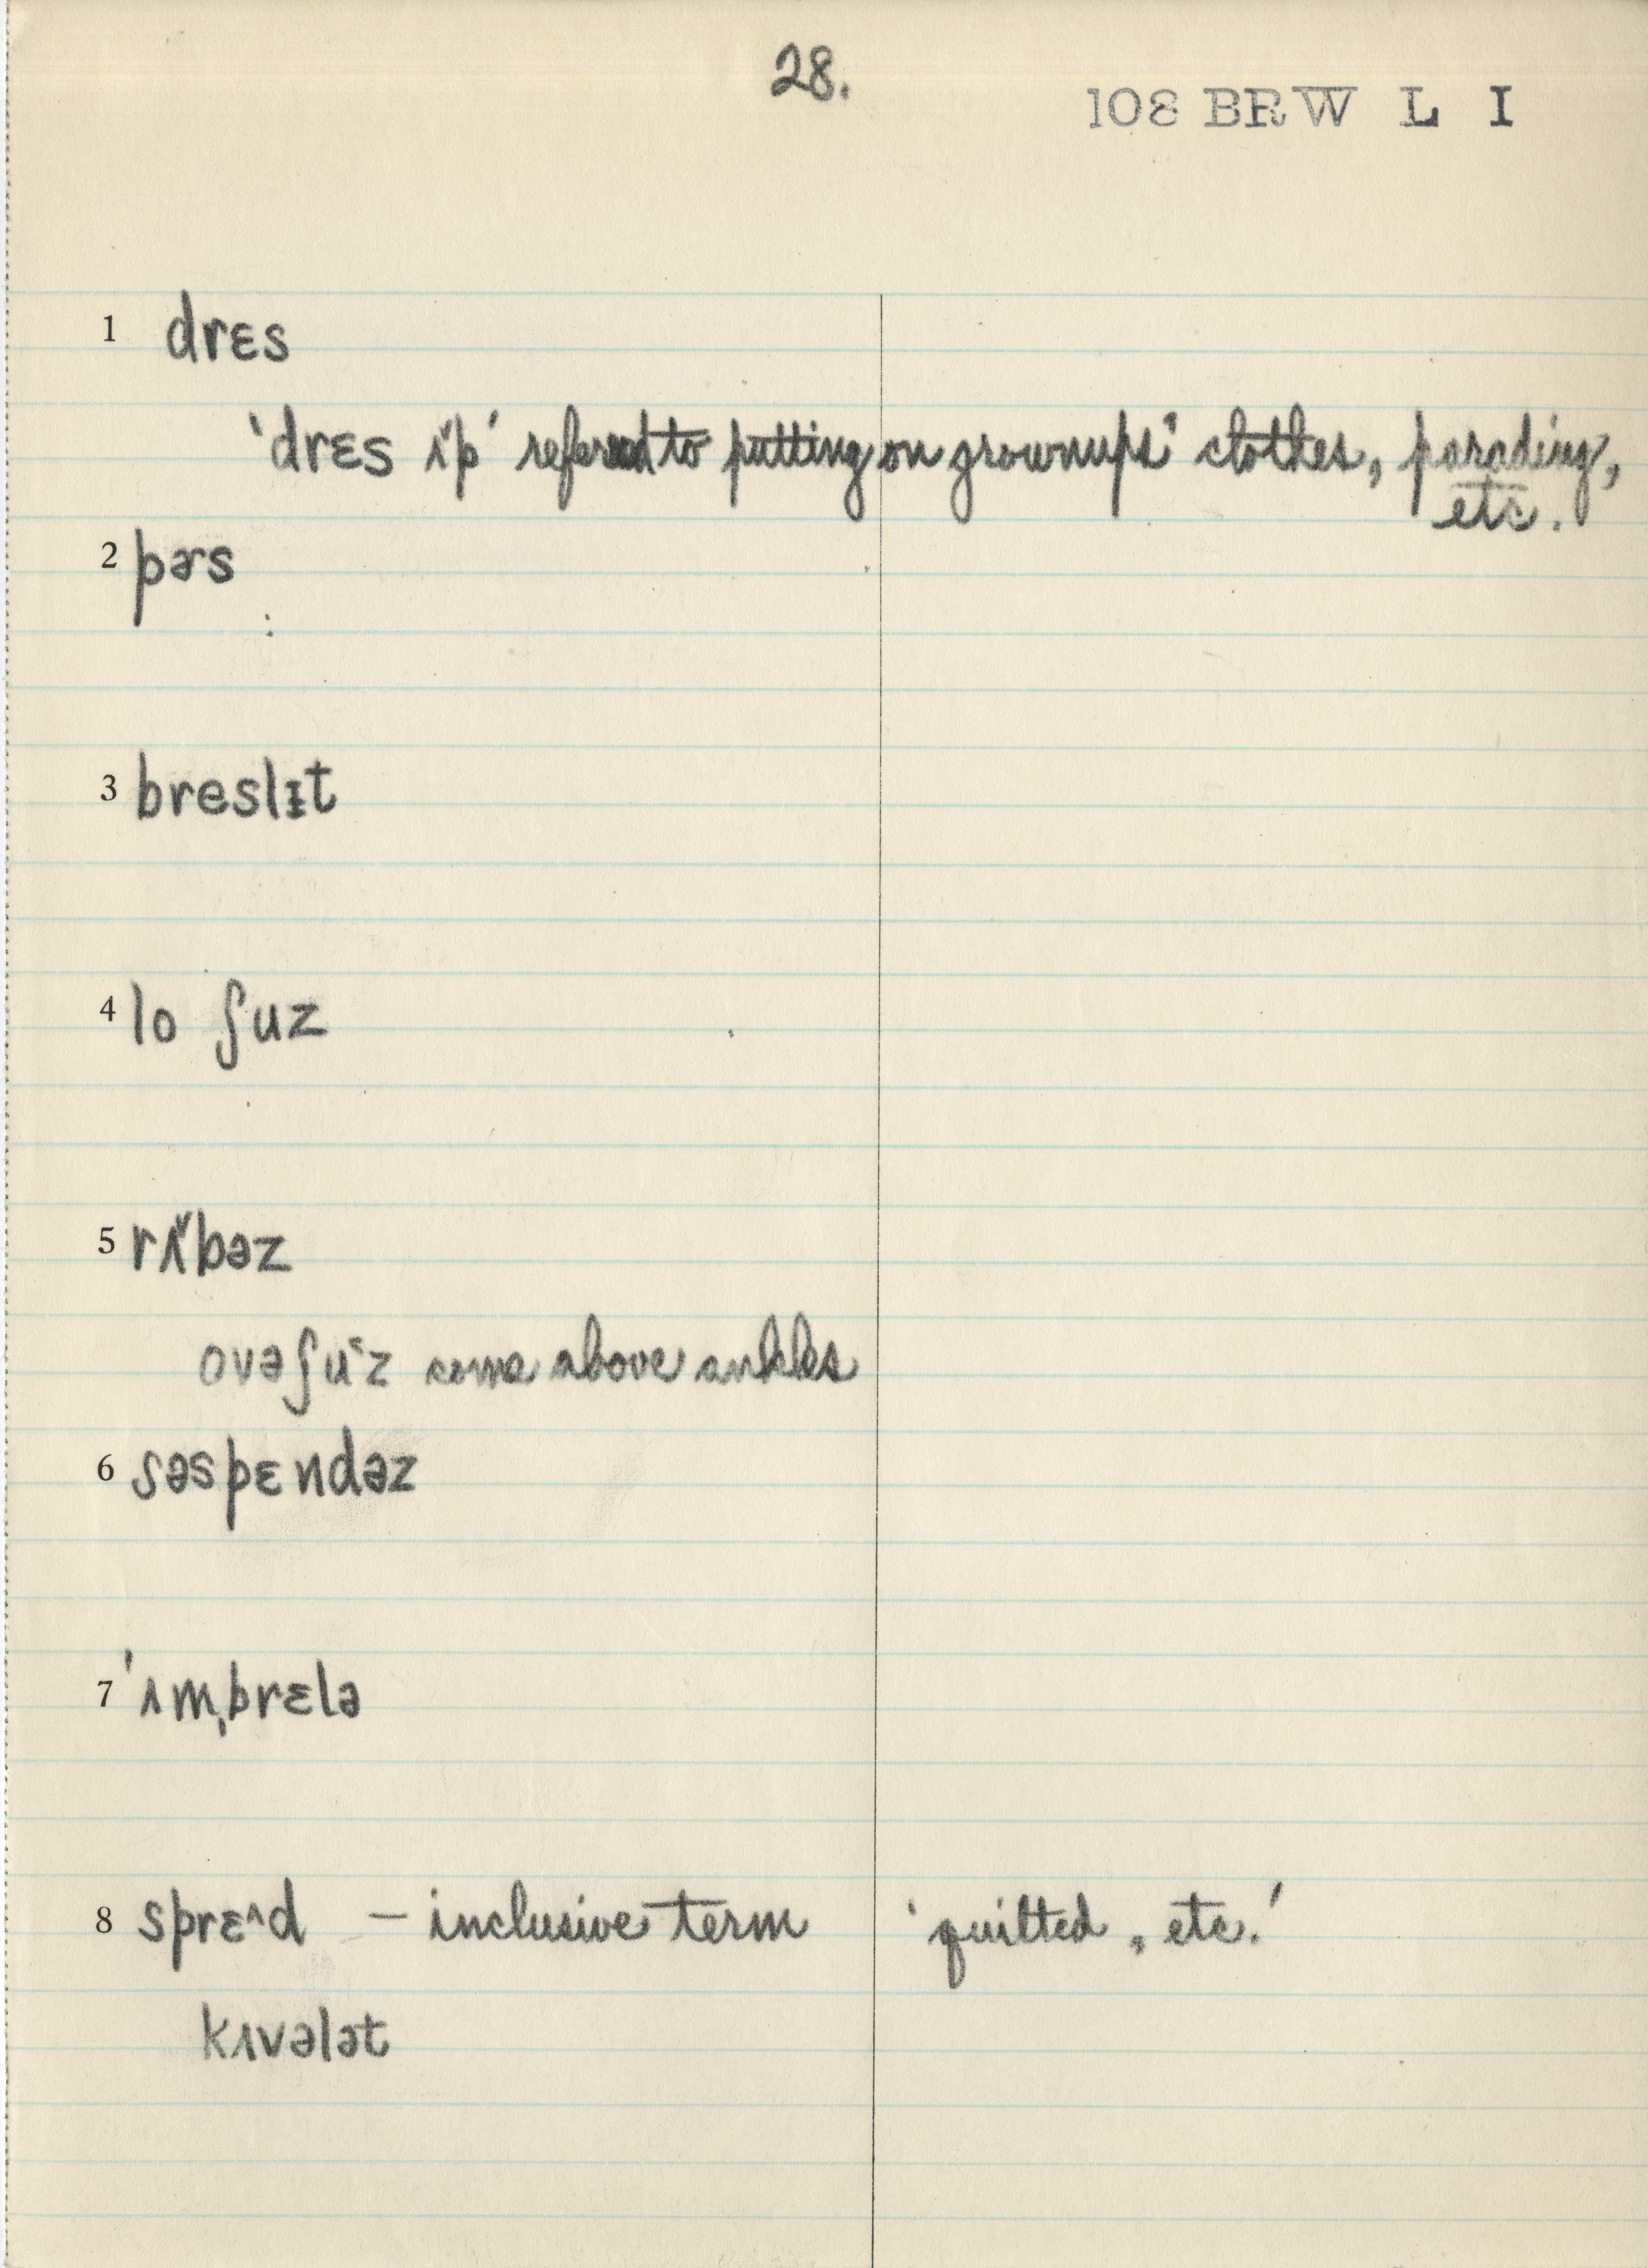 28.
108 BRW L I
1 drɛs
'drɛs ʌ̌p' refered to putting on grownups' clothes, parading,
etc.
2 pɚs
3 breslɪt
4 lo ʃuz
5 rʌ̌bəz
ovəʃuˇz come above ankles
6 səspɛndəz
7 ˈʌmˌbrɛlə
8 sprɛ^d – inclusive term 'quilted, etc.'
kʌvələt